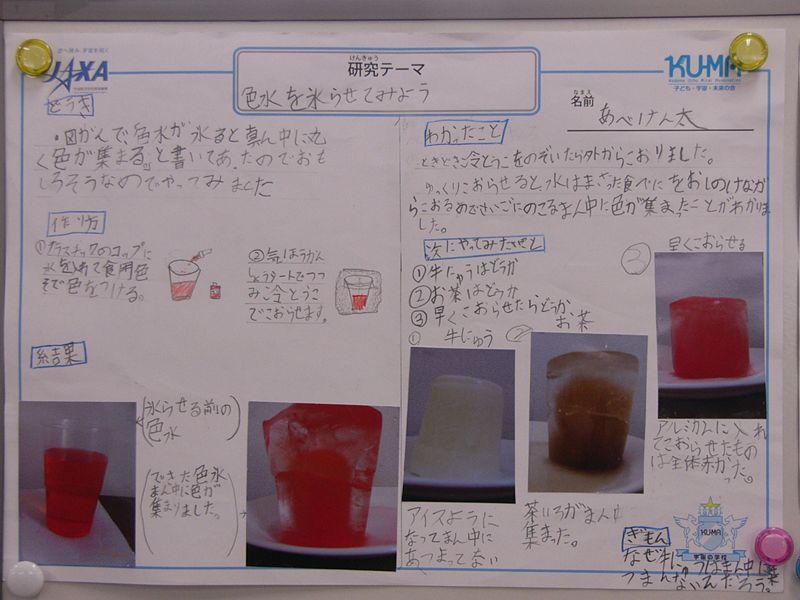 JAXA
けんきゅう
研究テーマ
色水を氷らせてみよう
KUMA
子ども・宇宙・未来の会
なまえ
名前
あべけん太
どうき
・図かんで、色水が氷ると真ん中に丸
く色が集まる。と書いてあったのでおも
しろそうなのでやってみました
作り方
①プラスチックのコップに
水を入れて食用色
そで色をつける。
②気ほうかん
しょうシートでつつ
みこ令とうこ
でこおらせます。
結果
氷らせる前の
色水
できた色氷
まん中に色が
集まりました。
わかったこと
ときどき令とうこをのぞいたら外からこおりました。
ゆっくりこおらせると、水はまざった食べにをおしのけなが
らこおるのでさいごにのこるまん中に色が集まったことがわかりま
した。
次にやってみたこと
①牛にゅうはどうか
②お茶はどうか
③早くこおらせたらどうか
① 牛にゅう
② お茶
③ 早くこおらせる
アイスように
なってまん中に
あつまってない
茶いろがまん中
集まった。
アルミカんに入れ
てこおらせたもの
は全体赤かった。
ぎもん
なぜ牛にゅうはまん中に集
つまんないんだろう。
KUMA
宇宙の学校